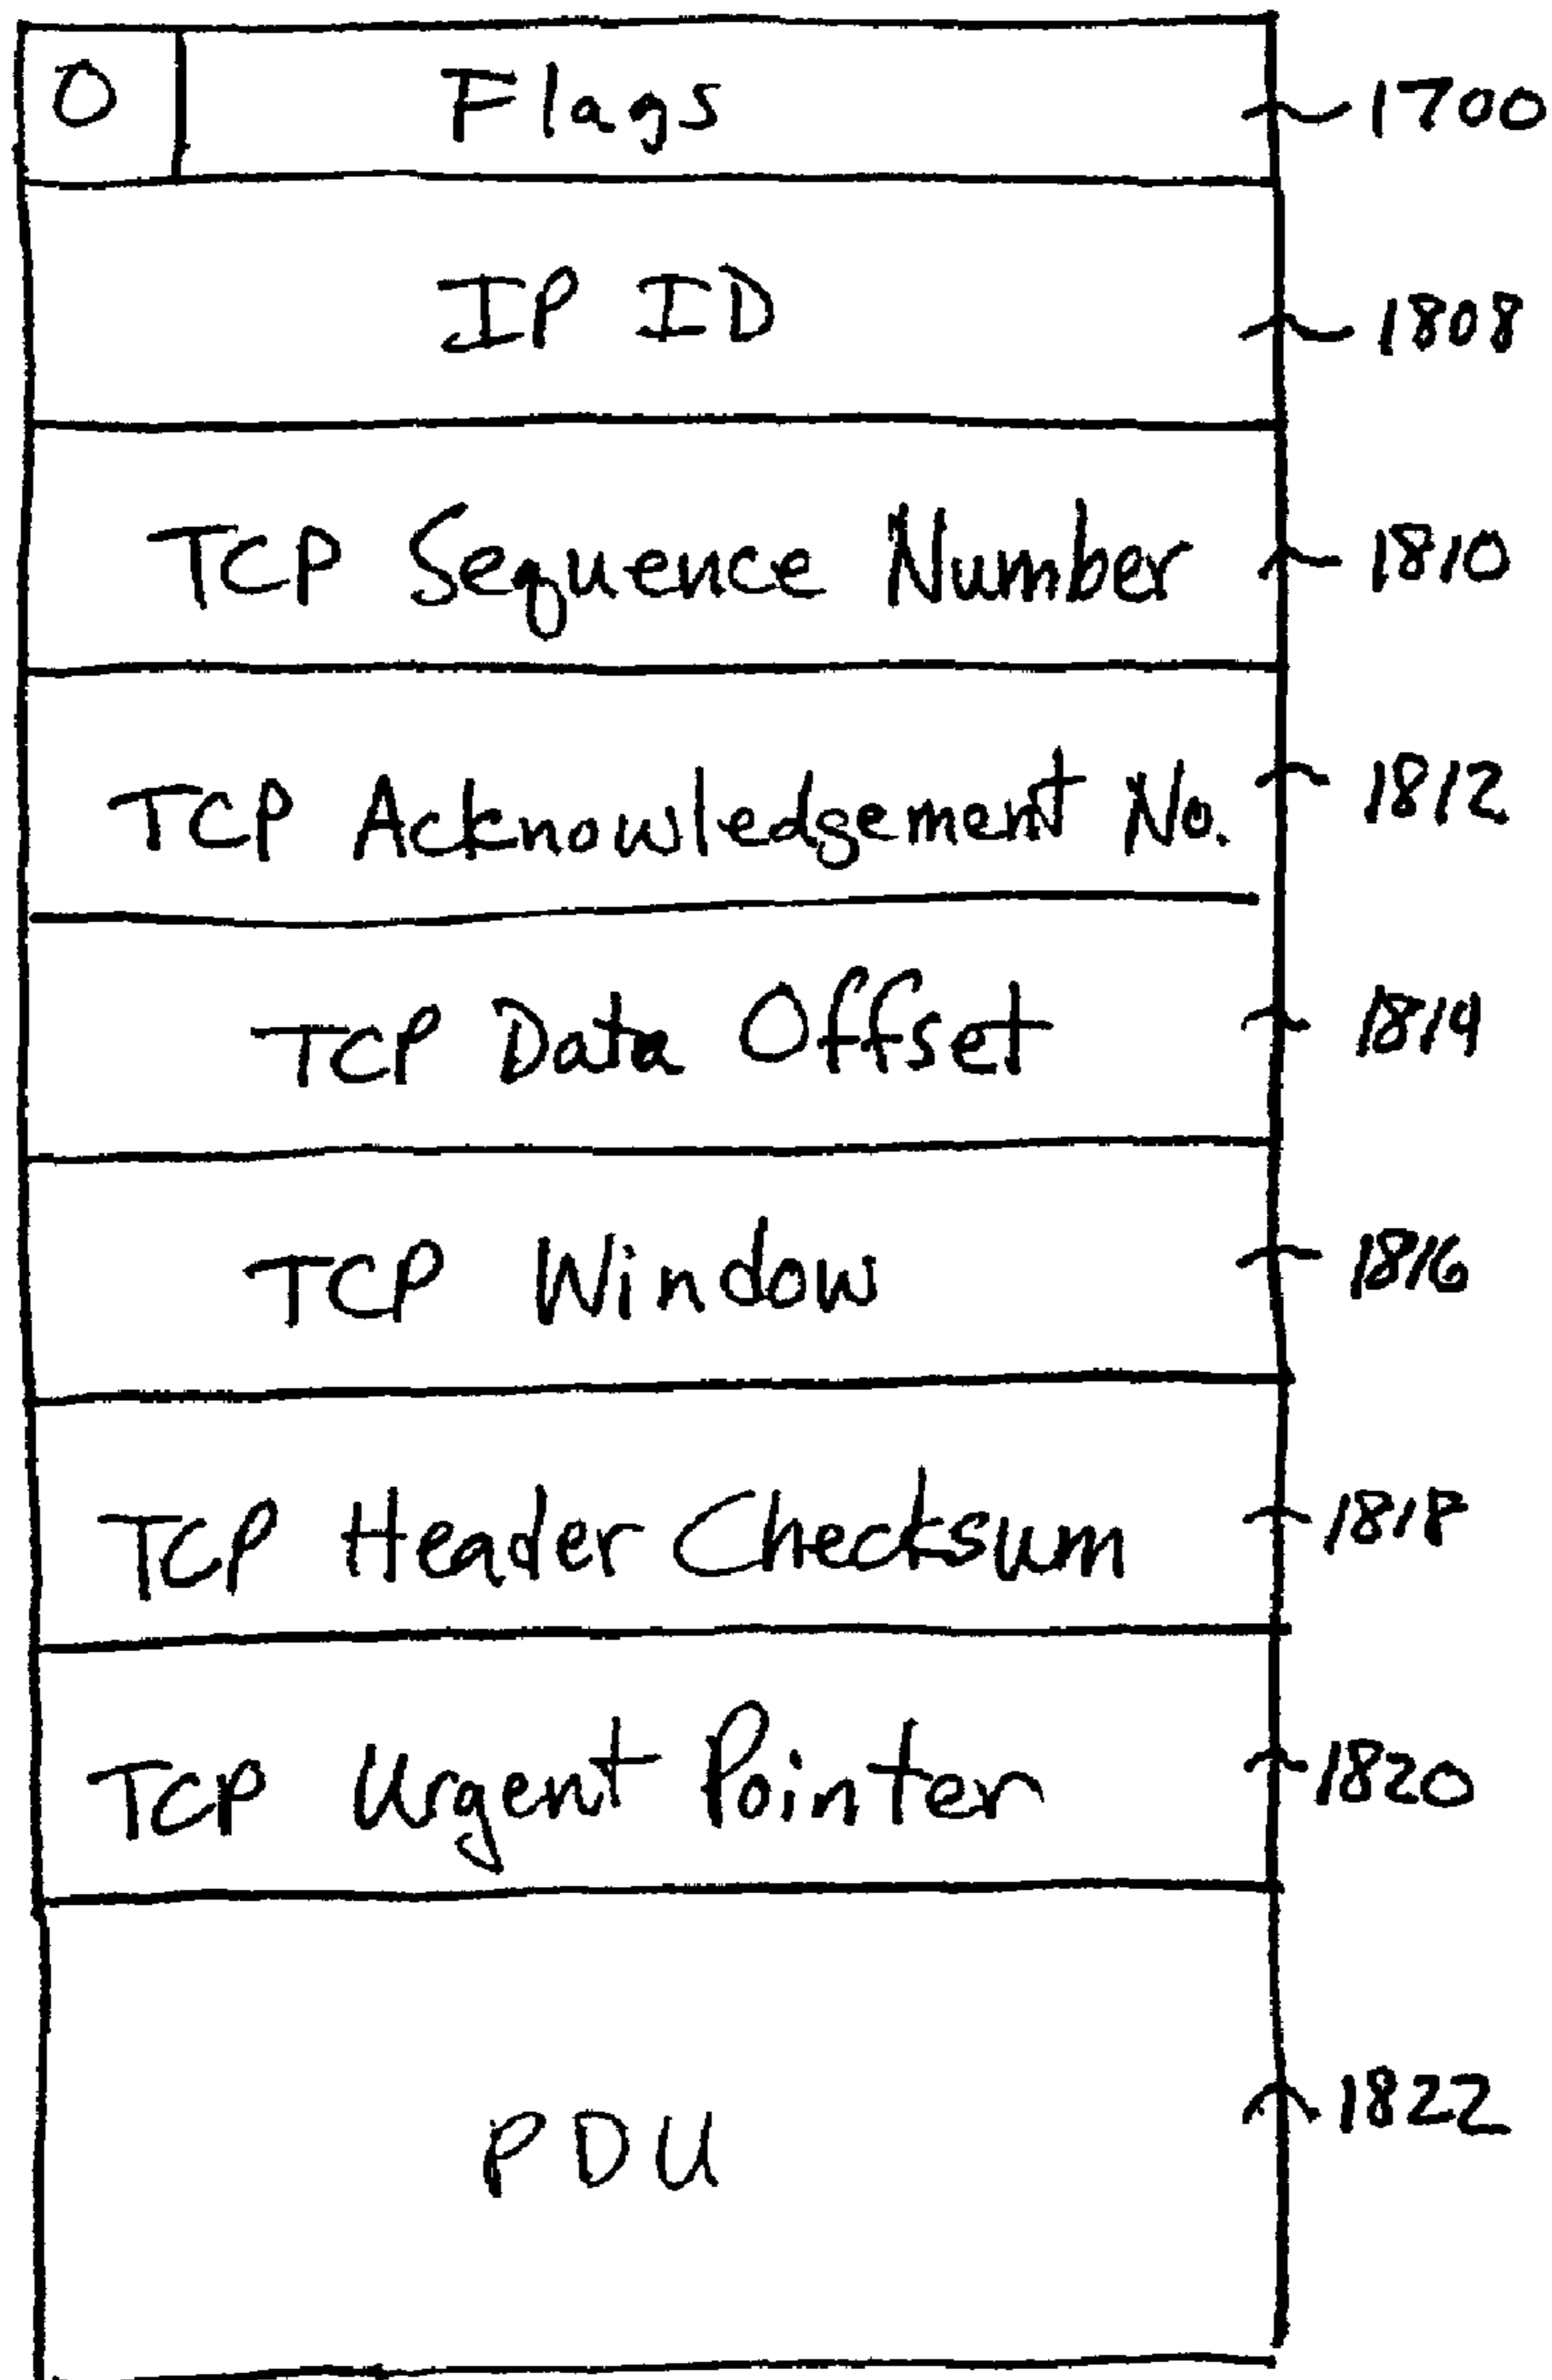 0 Flags 1700
IP ID 1808
TCP Sequence Number 1810
TCP Acknowledgement No. 1812
TCP Data Offset 1814
TCP Window 1816
TCP Header Checksum 1818
TCP Urgent Pointer 1820
PDU 1822